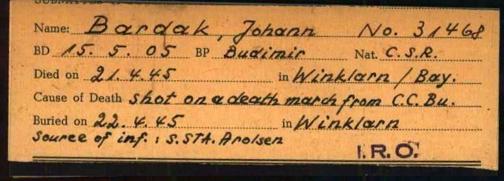 Name: Bardak, Johann No. 31468
BD 15. 5. 05 BP Budimir Nat. C.S.R.
Died on 21.4.45 in Winklarn / Bay.
Cause of Death shot on a death march from C.C. Bu.
Buried on 22.4.45 in Winklarn
Source of inf.: S.STA. Arolsen
I.R.O.